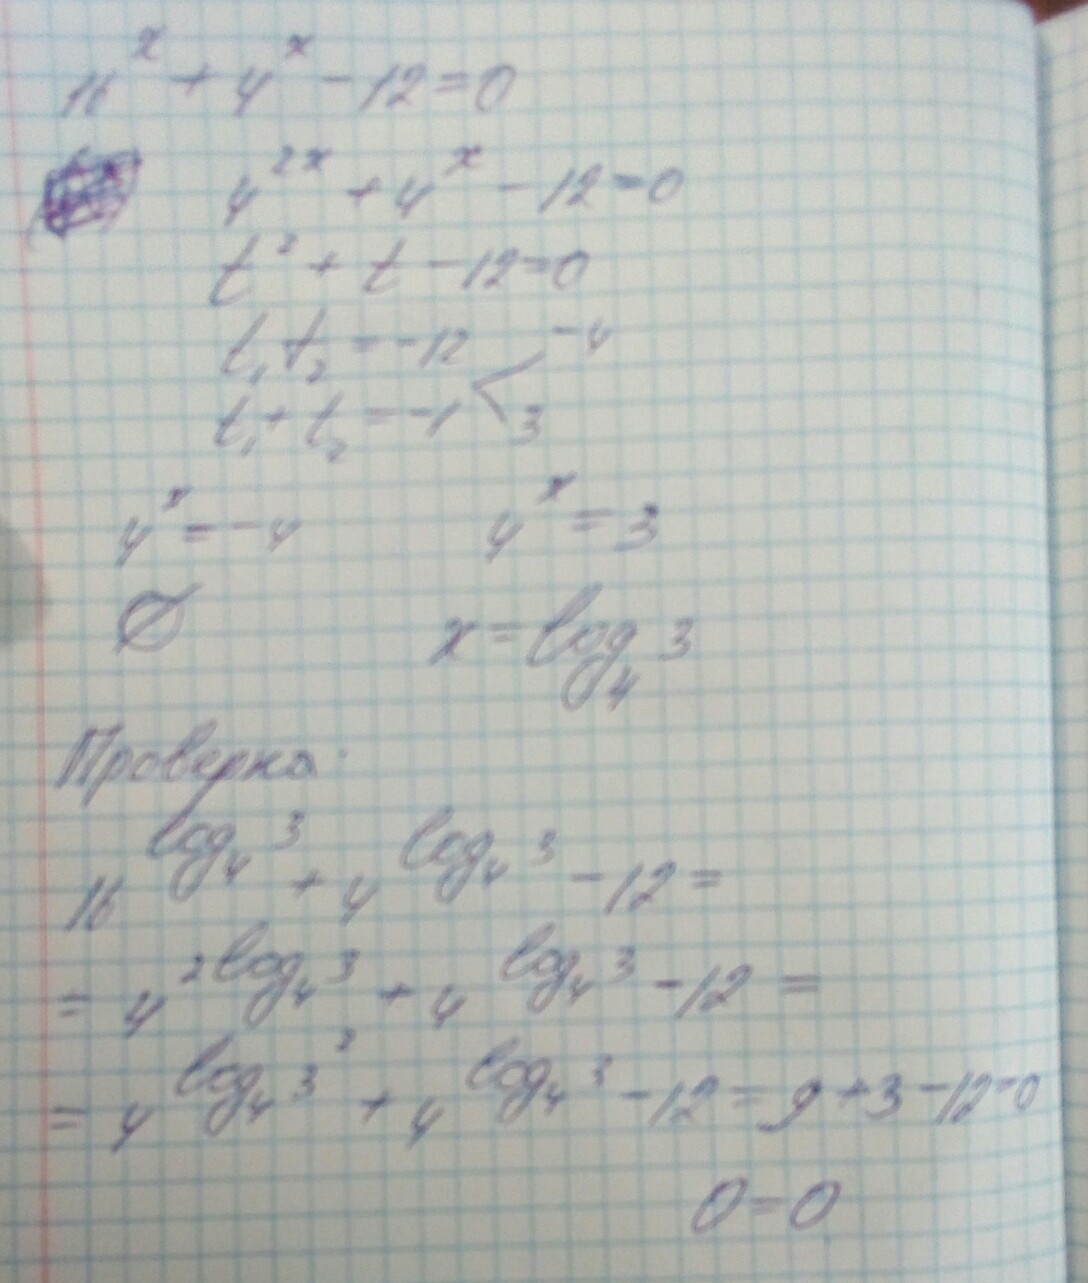 16^x + 4^x - 12 = 0
4^{2x} + 4^x - 12 = 0
t^2 + t - 12 = 0
t_1 t_2 = -12
-4
t_1 + t_2 = -1
3
4^x = -4
4^x = 3
∅
x = log_4 3
Проверка:
16^{log_4 3} + 4^{log_4 3} - 12 =
= 4^{2 log_4 3} + 4^{log_4 3} - 12 =
= 4^{log_4 3^2} + 4^{log_4 3} - 12 = 9 + 3 - 12 = 0
0 = 0